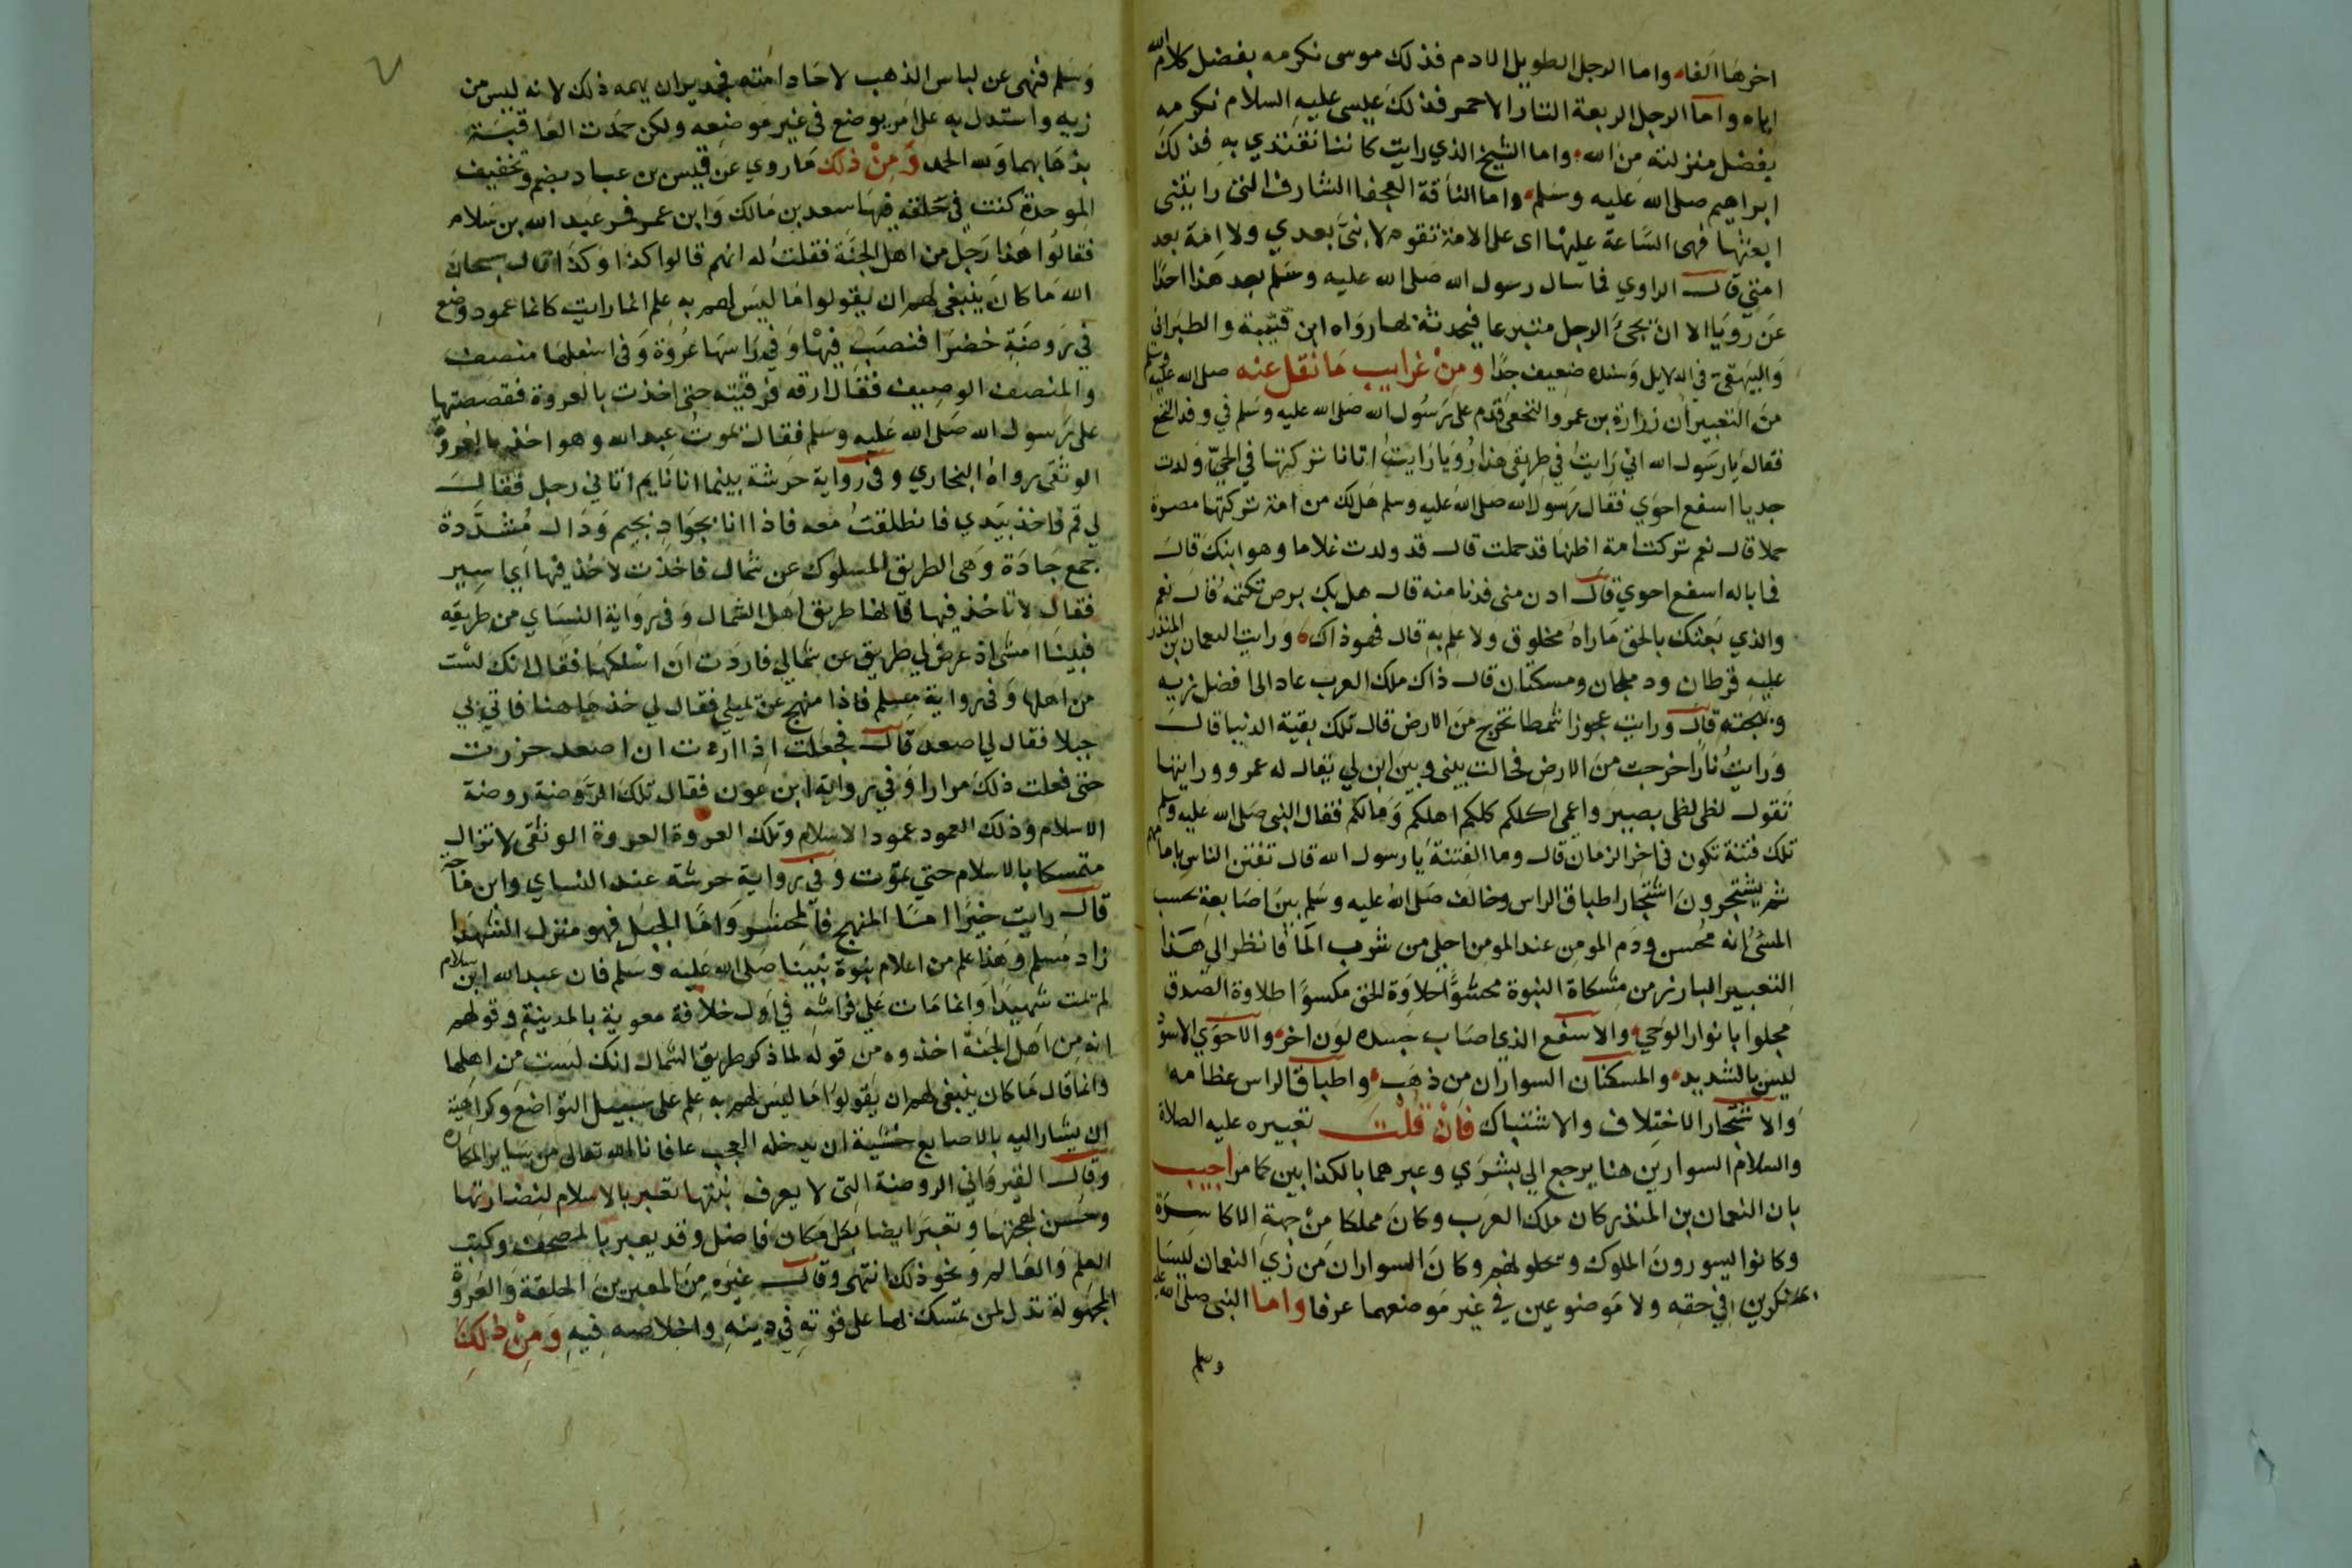 اخرها الفا واما الرجل الطويل الادم فذلك موسى نكرمه بفضل كلام الله
اياه واما الرجل الربعة التار الاحمر فذلك عيسى عليه السلام نكرمه
بفضل منزلته من الله واما الشيخ الذي رايت كاننا نقتدي به فذلك
ابراهيم صلى الله عليه وسلم واما الناقة العجفا الشارف التى رايتنى
ابعثها فهى الساعة علينا اى على الامة تقوم لا نبي بعدي ولا امة بعد
امتي قال الراوي فما سال رسول الله صلى الله عليه وسلم بعد هذا احدا
عن رويا الا ان يجئ الرجل متبرعا فيحدثه بها رواه ابن قتيبة والطبراني
والبيهقى في الدلايل وسنده ضعيف جدا ومن غرايب ما نقل عنه صلى الله عليه وسلم
من التعبير ان زرارة بن عمرو النخعى قدم على رسول الله صلى الله عليه وسلم في وفد النخع
فقال يا رسول الله اني رايت في طريقى هذا رؤيا رايت اتانا تركتها في الحي ولدت
جديا اسفع احوي فقال رسول الله صلى الله عليه وسلم هل لك من امة تركتها مصرة
حملا قال نعم تركت امة اظنها قد حملت قال قد ولدت غلاما وهو ابنك قال
فما باله اسفع احوي قال ادن منى فدنا منه قال هل بك برص تكتمه قال نعم
والذي بعثك بالحق ما راه مخلوق ولا علم به قال فهو ذاك ورايت النعمان بن المنذر
عليه قرطان ودملجان ومسكتان قال ذاك ملك العرب عاد الى افضل زيه
وبهجته قال ورايت عجوزا شمطا تخرج من الارض قال تلك بقية الدنيا قال
ورايت نارا خرجت من الارض فحالت بينى وبين ابن لي يقال له عمرو ورايتها
تقول لظى لظى بصير واعمى اكلكم كلكم اهلكم ومالكم فقال النبى صلى الله عليه وسلم
تلك فتنة تكون في اخر الزمان قال وما الفتنة يا رسول الله قال تفتن الناس بامامهم
ثم يشتجرون اشتجار اطباق الراس وخالف صلى الله عليه وسلم بين اصابعه يحسب
المسئ انه محسن ودم المومن عند المومن احلى من شرب الما فانظر الي هذا
التعبير البارز من مشكاة النبوة محشوا حلاوة الحق مكسوا طلاوة الصدق
مجلوا بانوار الوحي والاسفع الذي اصاب جسده لون اخر والاحوي الاسود
ليس بالشديد والمسكتان السواران من ذهب واطباق الراس عظامه
والاشتجار الاختلاف والاشتباك فان قلت تعبيره عليه الصلاة
والسلام السوارين هنا يرجع الي بشري وعبرهما بالكذابين كما مر اجيب
بان النعمان بن المنذر كان ملك العرب وكان مملكا من جهة الاكاسرة
وكانوا يسورون الملوك ويحلونهم وكان السواران من زي النعمان ليسا
بمنكرين في حقه ولا موضوعين في غير موضعهما عرفا واما النبي صلى الله عليه
وسلم
وسلم فنهى عن لباس الذهب لاحاد امته فجدير ان يهمه ذلك لانه ليس من
زيه واستدل به على امر يوضع في غير موضعه ولكن حمدت العاقبة
بذهابهما ولله الحمد ومن ذلك ما روي عن قيس بن عباد بضم وتخفيف
الموحدة كنت في حلقة فيها سعد بن مالك وابن عمر فمر عبد الله بن سلام
فقالوا هذا رجل من اهل الجنة فقلت له انهم قالوا كذا وكذا قال سبحان
الله ما كان ينبغي لهم ان يقولوا ما ليس لهم به علم انما رايت كانما عمود وضع
في روضة خضرا فنصب فيها وفي راسها عروة وفي اسفلها منصف
والمنصف الوصيف فقال ارقه فرقيته حتى اخذت بالعروة فقصصتها
على رسول الله صلى الله عليه وسلم فقال يموت عبد الله وهو اخذ بالعروة
الوثقى رواه البخاري وفي رواية خرشة بينما انا نايم اتاني رجل فقال
لي قم فاخذ بيدي فانطلقت معه فاذا انا بجواد بجيم ودال مشددة
جمع جادة وهى الطريق المسلوك عن شمال فاخذت لاخذ فيها اى اسير
فقال لا تاخذ فيها فانها طريق اهل الشمال وفي رواية النساي من طريقه
فبينا امشى اذ عرض لي طريق عن شمالي فاردت ان اسلكها فقال انك لست
من اهلها وفي رواية مسلم فاذا منهج عن يميني فقال لي خذ هاهنا فاتى بي
جبلا فقال لي اصعد قال فجعلت اذا اردت ان اصعد خررت
حتى فعلت ذلك مرارا وفي رواية ابن عون فقال تلك الروضة روضة
الاسلام وذلك العمود عمود الاسلام وتلك العروة العروة الوثقى لا تزال
متمسكا بالاسلام حتى تموت وفي رواية خرشة عند النساي وابن ماجه
قال رايت خيرا اما المنهج فالمحشر واما الجبل فهو منزل الشهدا
زاد مسلم وهذا علم من اعلام نبوة نبينا صلى الله عليه وسلم فان عبد الله ابن سلام
لم يمت شهيدا وانما مات على فراشه في اول خلافة معوية بالمدينة وقولهم
انه من اهل الجنة اخذوه من قوله لما ذكر طريق الشمال انك لست من اهلها
وانما قال ما كان ينبغى لهم ان يقولوا ما ليس لهم به علم على سبيل التواضع وكراهية
ان يشار اليه بالاصابع خشية ان يدخله العجب عافانا الله تعالى من ساير المكاره
وقال القيرواني الروضة التى لا يعرف نبتها تعبر بالاسلام لنضارتها
وحسن بهجتها وتعبر ايضا بكل مكان فاضل وقد يعبر بالمصحف وكتب
العلم والعالم ونحو ذلك انتهى وقال غيره من المعبرين الحلقة والعروة
المجهولة تدل لمن تمسك بها على قوته في دينه واخلاصه فيه ومن ذلك